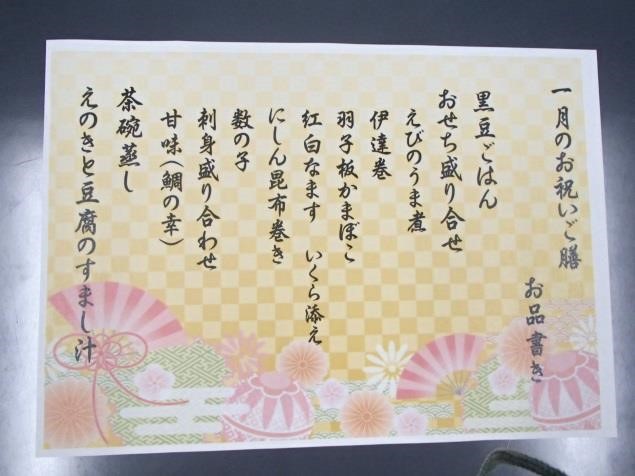 一月のお祝いご膳
お品書き
黒豆ごはん
おせち盛り合せ
えびのうま煮
伊達巻
羽子板かまぼこ
紅白なます　いくら添え
にしん昆布巻き
数の子
刺身盛り合わせ
甘味(鯛の幸)
茶碗蒸し
えのきと豆腐のすまし汁